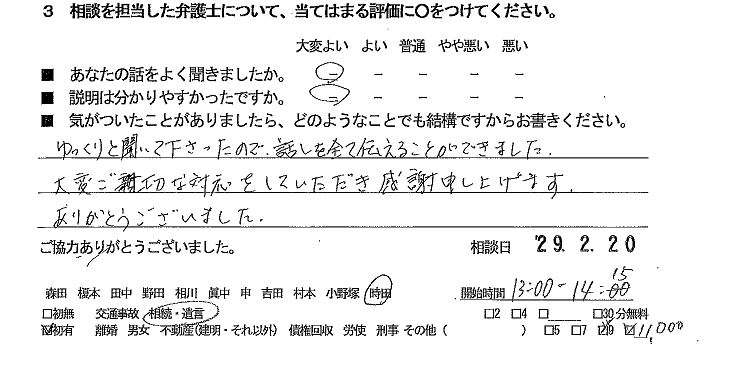 3 相談を担当した弁護士について、当てはまる評価に〇をつけてください。
大変よい よい 普通 やや悪い 悪い
■ あなたの話をよく聞きましたか。 － － － － －
■ 説明は分かりやすかったですか。 － － － － －
■ 気がついたことがありましたら、どのようなことでも結構ですからお書きください。
ゆっくりと聞いて下さったので、話しを全て伝えることができました.
大変ご親切な対応をしていただき感謝申し上げます.
ありがとうございました.
ご協力ありがとうございました。 相談日 '29.2.20
森田 榎本 田中 野田 相川 眞中 申 吉田 村本 小野塚 時田 開始時間 13:00-14:00 15
□初無 交通事故 相続・遺言 □2 □4 □____ □30分無料
☑初有 離婚 男女 不動産(建明・それ以外) 債権回収 労使 刑事 その他( ) □5 □7 ☑9 ☑11,000